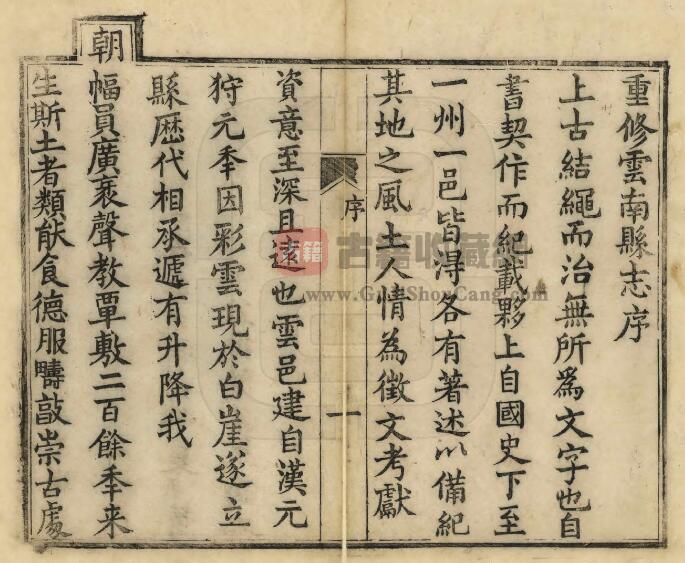 重修雲南縣志序
上古結繩而治無所爲文字也自
書契作而紀載夥上自國史下至
一州一邑皆得各有著述以備紀
其地之風土人情為徵文考獻
序
一
資意至深且遠也雲邑建自漢元
狩元秊因彩雲現於白崖遂立
縣歷代相承遞有升降我
朝幅員廣袤聲教覃敷二百餘秊来
生斯土者類能食德服疇敲崇古處
古籍
古籍收藏網
www.GuJiShouCang.com